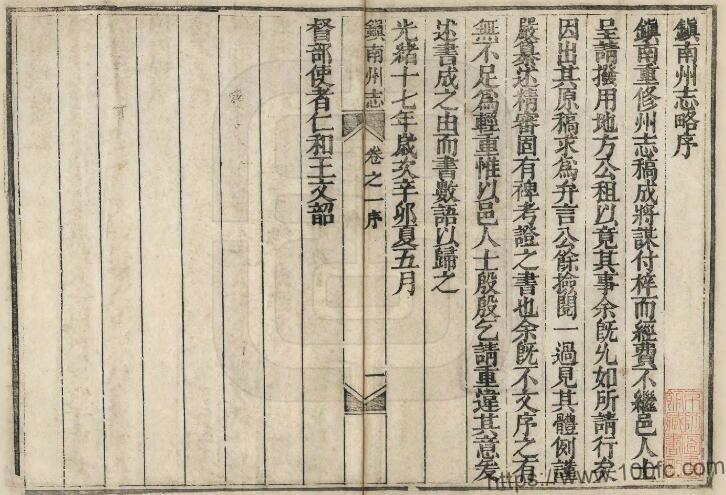 鎮南州志略序
鎮南重修州志稿成將謀付梓而經費不繼邑人士
呈請撥用地方公租以竟其事余旣允如所請行矣
因出其原稿求爲弁言公餘撿閱一過見其體例謹
嚴纂述精審固有裨考證之書也余旣不文序之有
無不足爲輕重惟以邑人士殷殷乞請重違其意爰
述書成之由而書數語以歸之
光緒十七年歲次辛卯夏五月
鎮南州志
卷之一序
一
督部使者仁和王文韶
https://www.10bfc.com